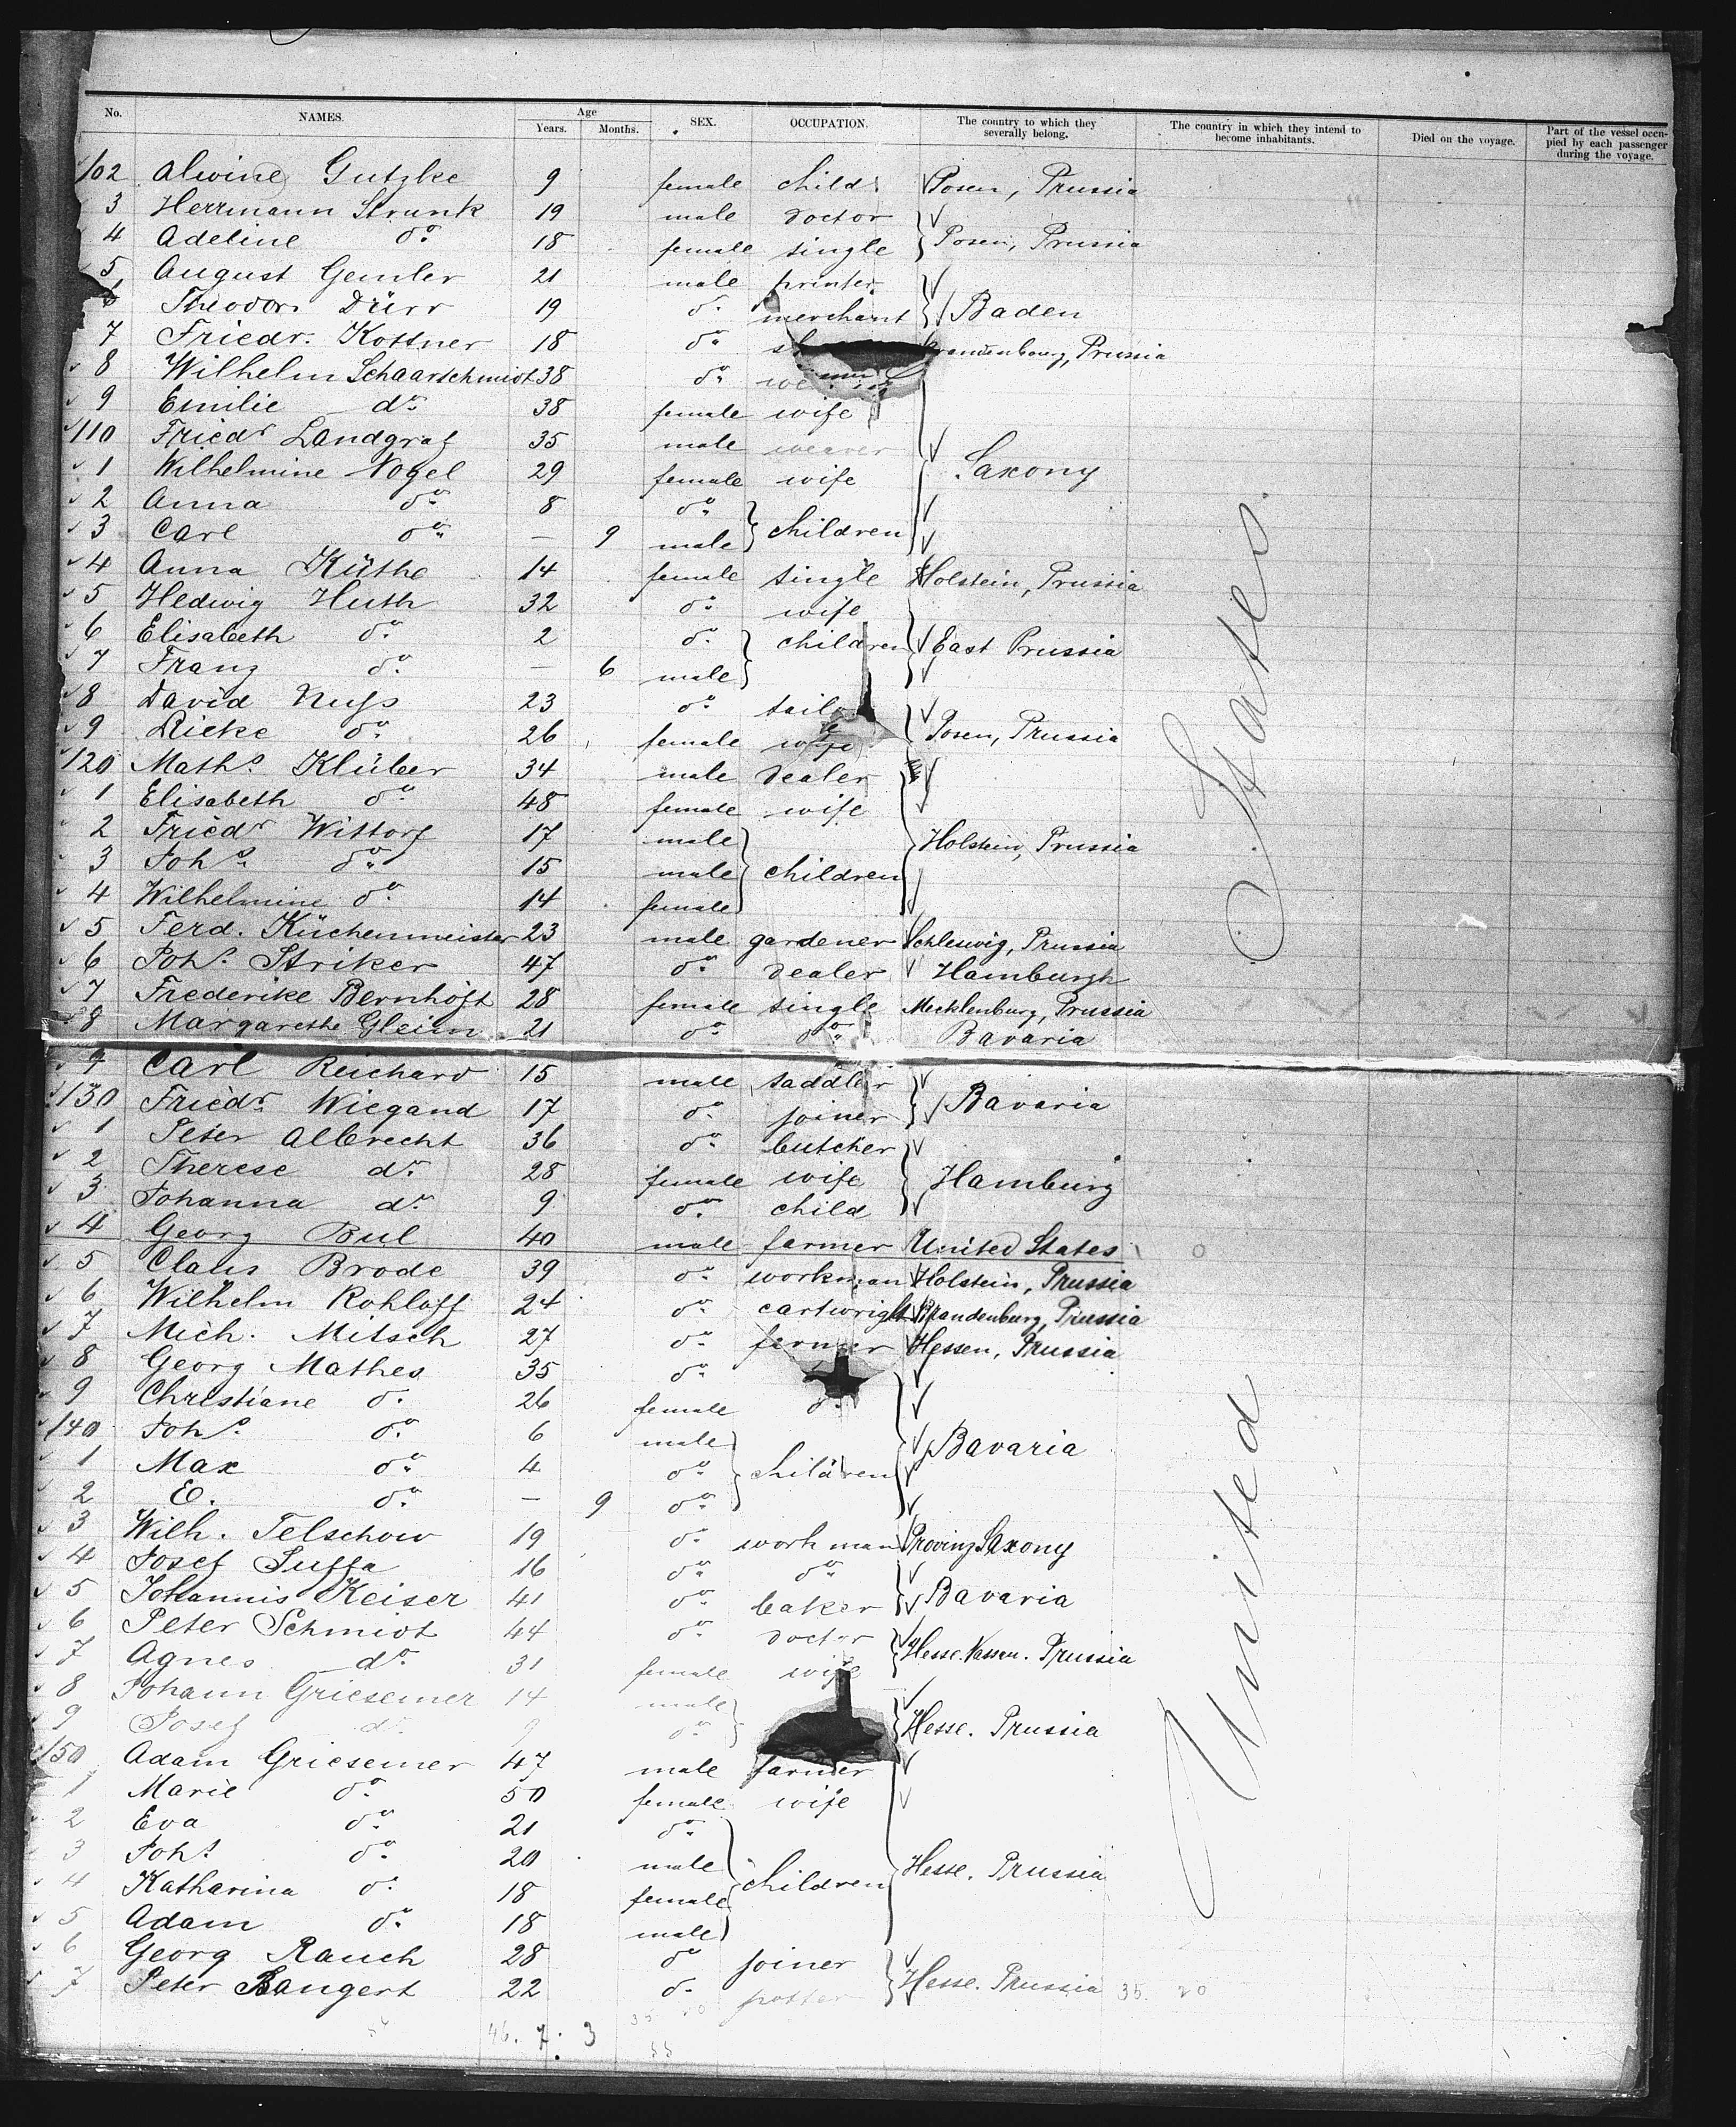 No. NAMES. Age Years. Months. SEX. OCCUPATION. The country to which they severally belong. The country in which they intend to become inhabitants. Died on the voyage. Part of the vessel occupied by each passenger during the voyage.
102 Alwine Gutzke 9 female child Posen, Prussia
3 Herrmann Strunk 19 male doctor
4 Adeline do. 18 female single Posen, Prussia
5 August Gemler 21 male printer
6 Theodor Dürr 19 do. merchant Baden
7 Friedr. Kottner 18 do. Brandenburg, Prussia
8 Wilhelm Schaarschmidt 38 do.
9 Emilie do. 38 female wife
110 Friedr. Landgraf 35 male weaver
1 Wilhelmine Vogel 29 female wife Saxony
2 Anna do. 8 do.
3 Carl do. — 9 male children
4 Anna Küthe 14 female single Holstein, Prussia
5 Hedwig Huth 32 do. wife
6 Elisabeth do. 2 do. children East Prussia
7 Franz do. — 6 male
8 David Nuss 23 do. tailor
9 Rieke do. 26 female wife Posen, Prussia
120 Maths. Klüber 34 male dealer
1 Elisabeth do. 48 female wife
2 Friedr. Wittorf 17 male Holstein, Prussia
3 Johs. do. 15 male children
4 Wilhelmine do. 14 female
5 Ferd. Küchenmeister 23 male gardener Schleswig, Prussia
6 Johs. Striker 47 do. dealer Hamburgh
7 Frederike Bernhöft 28 female single Mecklenburg, Prussia
8 Margarethe Gleim 21 do. do. Bavaria
9 Carl Reichard 15 male saddler
130 Friedr. Wiegand 17 do. joiner Bavaria
1 Peter Albrecht 36 do. butcher
2 Therese do. 28 female wife Hamburg
3 Johanna do. 9 do. child
4 Georg Bul 40 male farmer United States
5 Claus Brode 39 do. workman Holstein, Prussia
6 Wilhelm Rohloff 24 do. cartwright Brandenburg, Prussia
7 Mich. Mitsch 27 do. farmer Hessen, Prussia
8 Georg Mathes 35 do.
9 Christiane do. 26 female
140 Johs. do. 6 male Bavaria
1 Max do. 4 do. children
2 E. do. — 9 do.
3 Wilh. Telschow 19 do. workman Provinz Saxony
4 Josef Suffa 16 do. do.
5 Johannis Keiser 41 do. baker Bavaria
6 Peter Schmidt 44 do. doctor
7 Agnes do. 31 female wife Hesse. Nassau. Prussia
8 Johann Griesemer 14 male
9 Josef do. 9 do. Hesse. Prussia
150 Adam Griesemer 47 male farmer
1 Marie do. 50 female wife
2 Eva do. 21 do.
3 Johs. do. 20 male
4 Katharina do. 18 female children Hesse. Prussia
5 Adam do. 18 male
6 Georg Rauch 28 do. joiner
7 Peter Bangert 22 do. potter Hesse. Prussia 35. 20
46. 7. 3
United States.